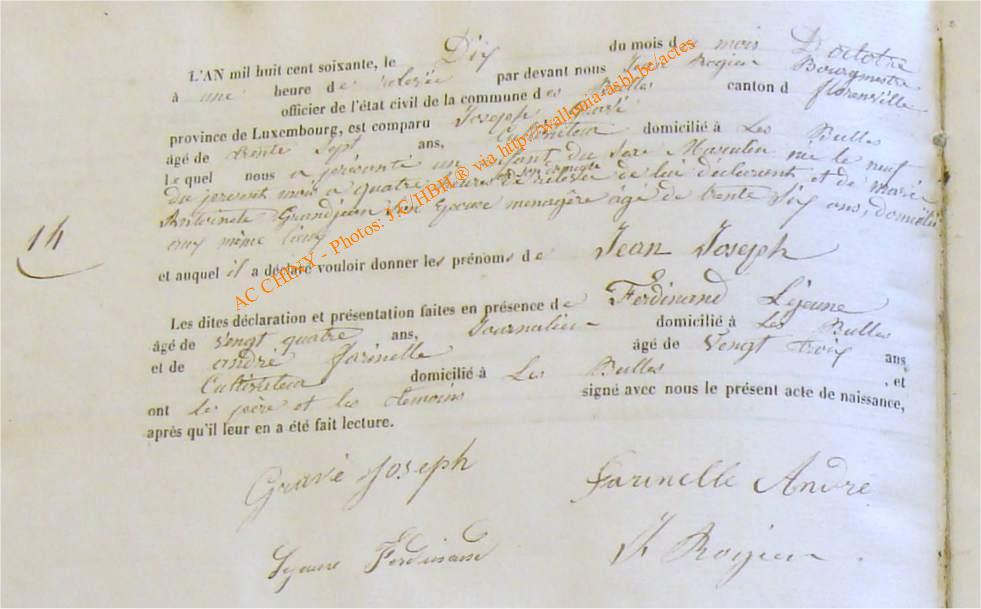 L'AN mil huit cent soixante, le Dix du mois d mois D'octobre
à une heure de relevée par devant nous Jean Rogier Bourgmestre
officier de l'état civil de la commune des Bulles canton d florenville
province de Luxembourg, est comparu Joseph Gravé
âgé de trente Sept ans, Cultivateur domicilié à Les Bulles
Le quel nous a présenté un enfant du Sexe Masculin née le neuf
du présent mois a quatre heures de relevée de lui déclarant et de Marie
Antoinete Grandjean son Epouse menagère âgé de trente Six ans, domicilié
aux même lieux
14
et auquel il a déclaré vouloir donner les prénoms de Jean Joseph
Les dites déclaration et présentation faites en présence de Ferdinand Lejeune
âgé de vengt quatre ans, Journalier domicilié à Les Bulles
et de andré farinelle âgé de vengt troix ans
Cultivateur domicilié à Les Bulles , et
ont le père et les temoins signé avec nous le présent acte de naissance,
après qu'il leur en a été fait lecture.
Gravé Joseph Farinelle André
Lejeune Ferdinand Rogier
AC CHINY - Photos: J.C/HBH ® via http://wallonia-asbl.be/actes